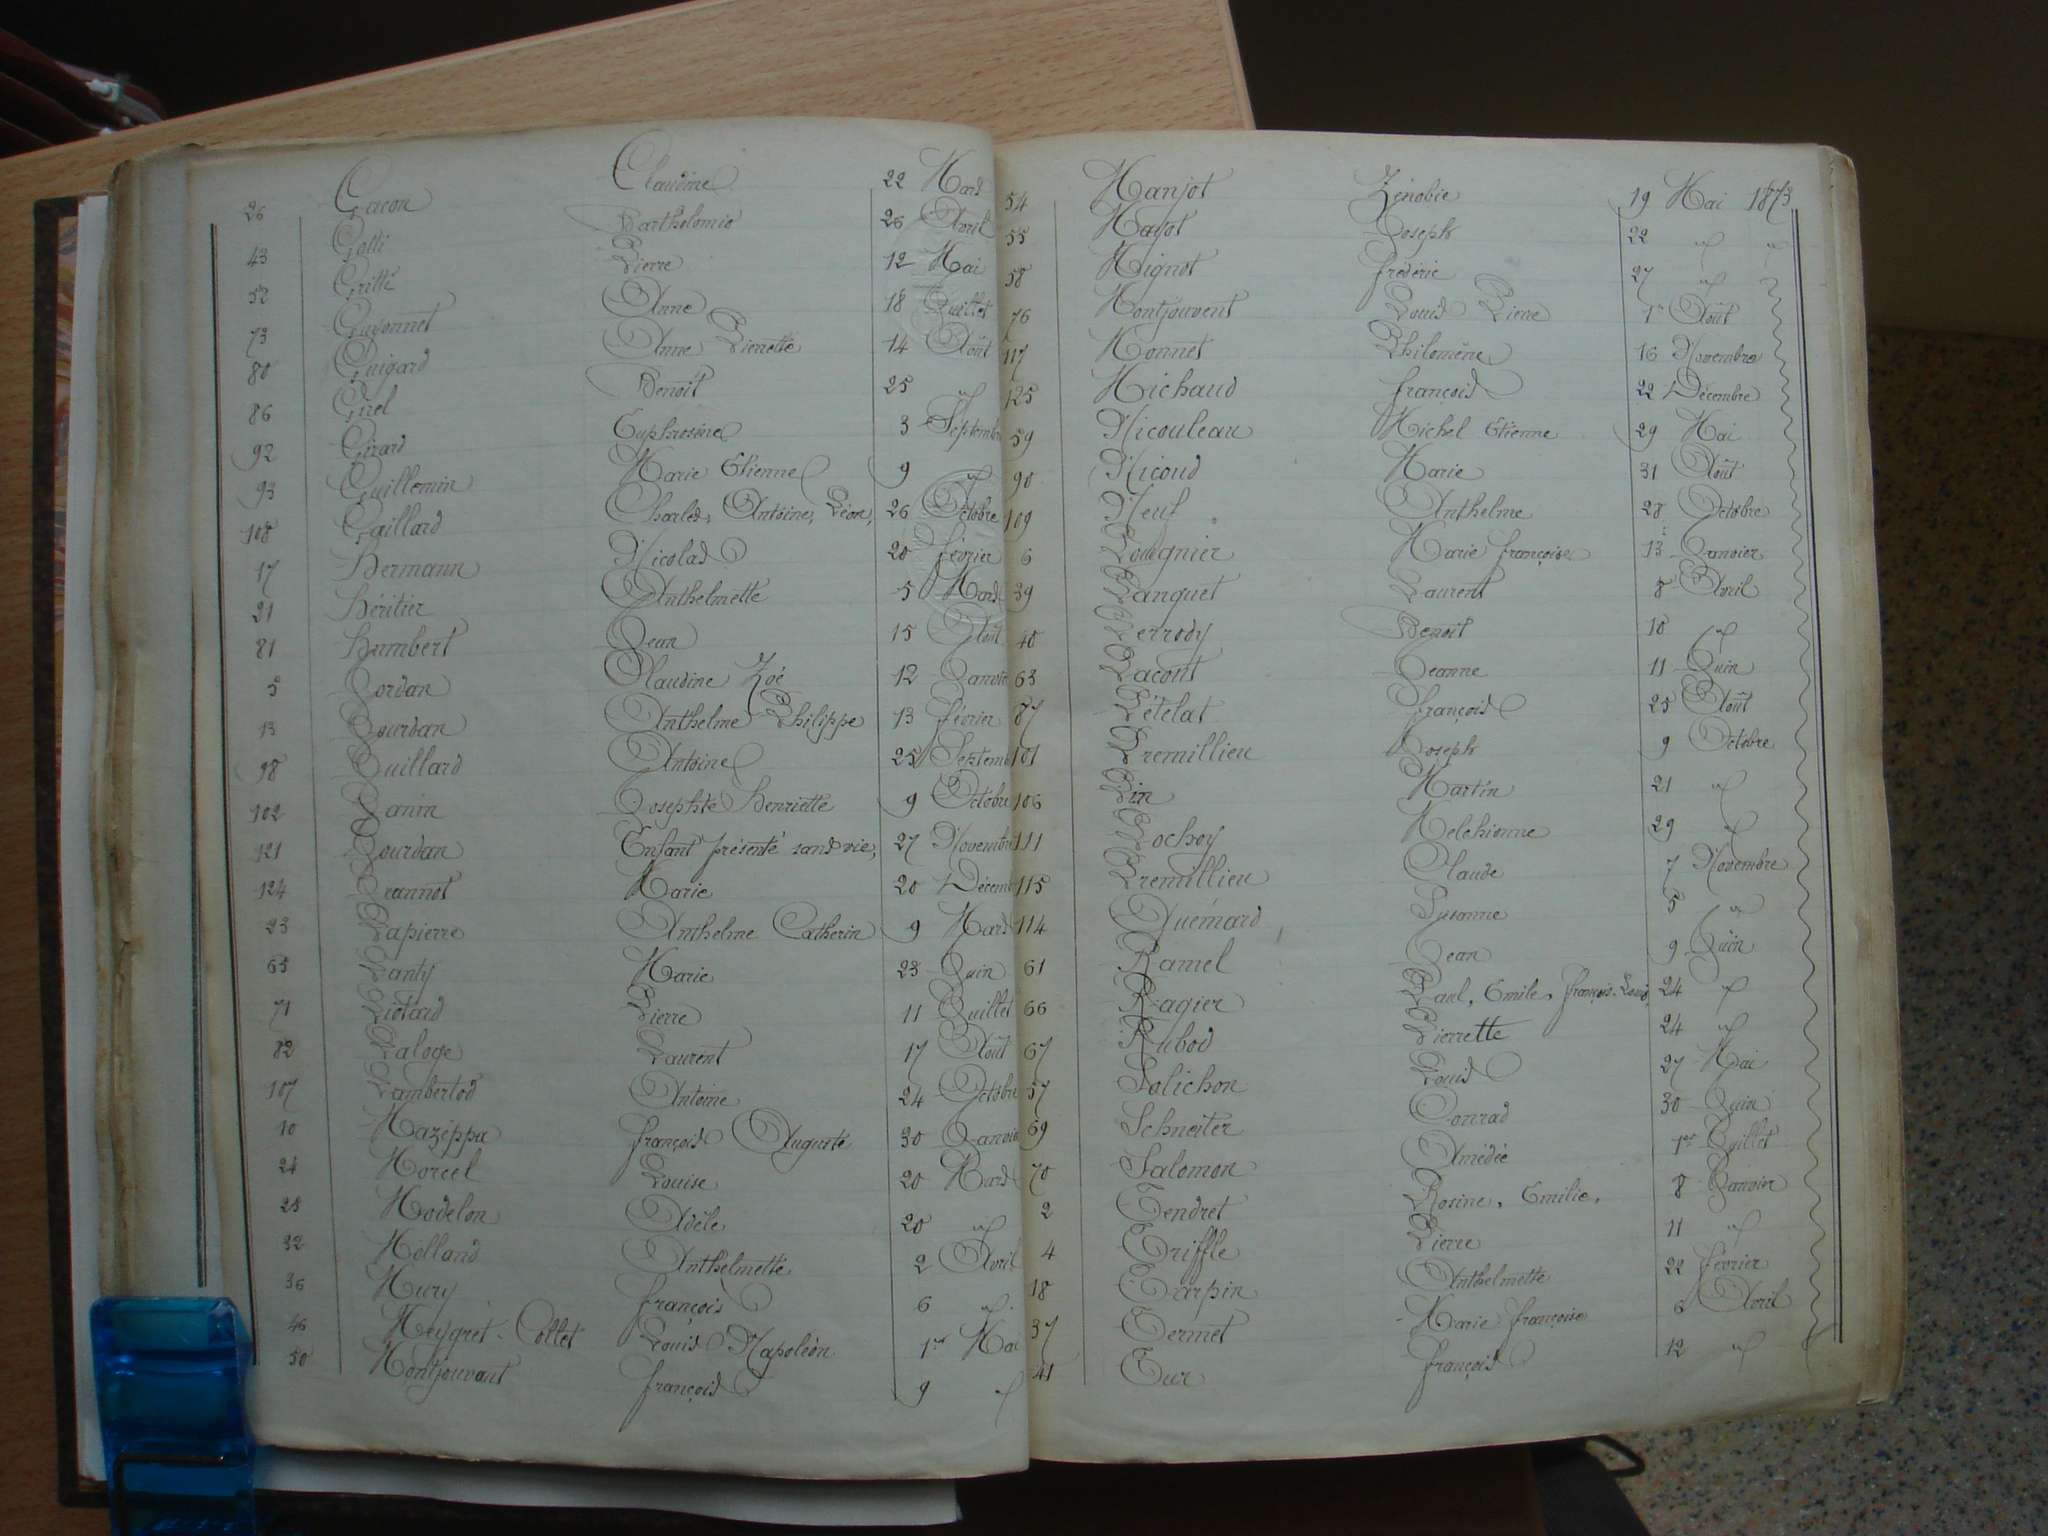 26 Gacon Claudine 22 Mars
43 Golli Barthélomio 26 Avril
52 Gritte Pierre 12 Mai
73 Guyonnet Anne 18 Juillet
80 Guigard Anne Pierrette 14 Août
86 Girel Benoît 25 "
92 Girard Euphrosine 3 Septembre
93 Guillemin Marie Etienne 9 "
108 Gaillard Charles, Antoine, Léon, 26 Octobre
17 Hermann Nicolas 20 Février
21 Héritier Anthelmette 5 Mars
81 Humbert Jean 15 Août
5 Jordan Claudine Zoé 12 Janvie
13 Jourdan Anthelme Philippe 13 Février
98 Juillard Antoine 25 Septemb
102 Janin Josephte Henriette 9 Octobre
121 Jourdan Enfant présenté sans vie, 27 Novembre
124 Jeannot Marie 20 Décemb
23 Lapierre Anthelme Catherin 9 Mars
65 Lanty Marie 23 Juin
71 Liotard Pierre 11 Juillet
82 Laloge Laurent 17 Août
107 Lambertod Antoine 24 Octobre
10 Mazéppa François Auguste 30 Janvie
24 Morcel Louise 20 Mars
28 Modelon Adèle 20 "
32 Melland Anthelmette 2 Avril
36 Mury François 6 "
46 Meygret-Collet Louis Napoléon 1er Mai
50 Montjouvant François 9 "
54 Manjot Zénobie 19 Mai 1873
55 Mayot Joseph 22 " "
58 Mignot Frédéric 27 "
76 Montjouvent Louis Pierre 1er Août
117 Monnet Philomène 16 Novembre
125 Michaud François 22 Décembre
59 Nicouleau Michel Etienne 29 Mai
90 Nicoud Marie 31 Août
109 Neuf Anthelme 28 Octobre
6 Pougnier Marie Françoise 13 Janvier
39 Panquet Laurent 8 Avril
40 Perrody Benoît 10 "
63 Pacout Jeanne 11 Juin
87 Pételat François 25 Août
101 Premillieu Joseph 9 Octobre
106 Pin Martin 21 "
111 Pochoy Melchionne 29 "
115 Premillieu Claude 7 Novembre
114 Quémard Susanne 5 "
61 Ramel Jean 9 Juin
66 Ragier Paul, Emile, François-Louis, 24 "
67 Rubod Pierrette 24 "
57 Solichon Louis 27 Mai
69 Schneiter Conrad 30 Juin
70 Salomon Amédée 1er Juillet
2 Tendret Rosine, Emilie, 8 Janvier
4 Triffle Pierre 11 "
18 Tarpin Anthelmette 22 Février
37 Termet Marie Françoise 6 Avril
41 Tur François 12 "